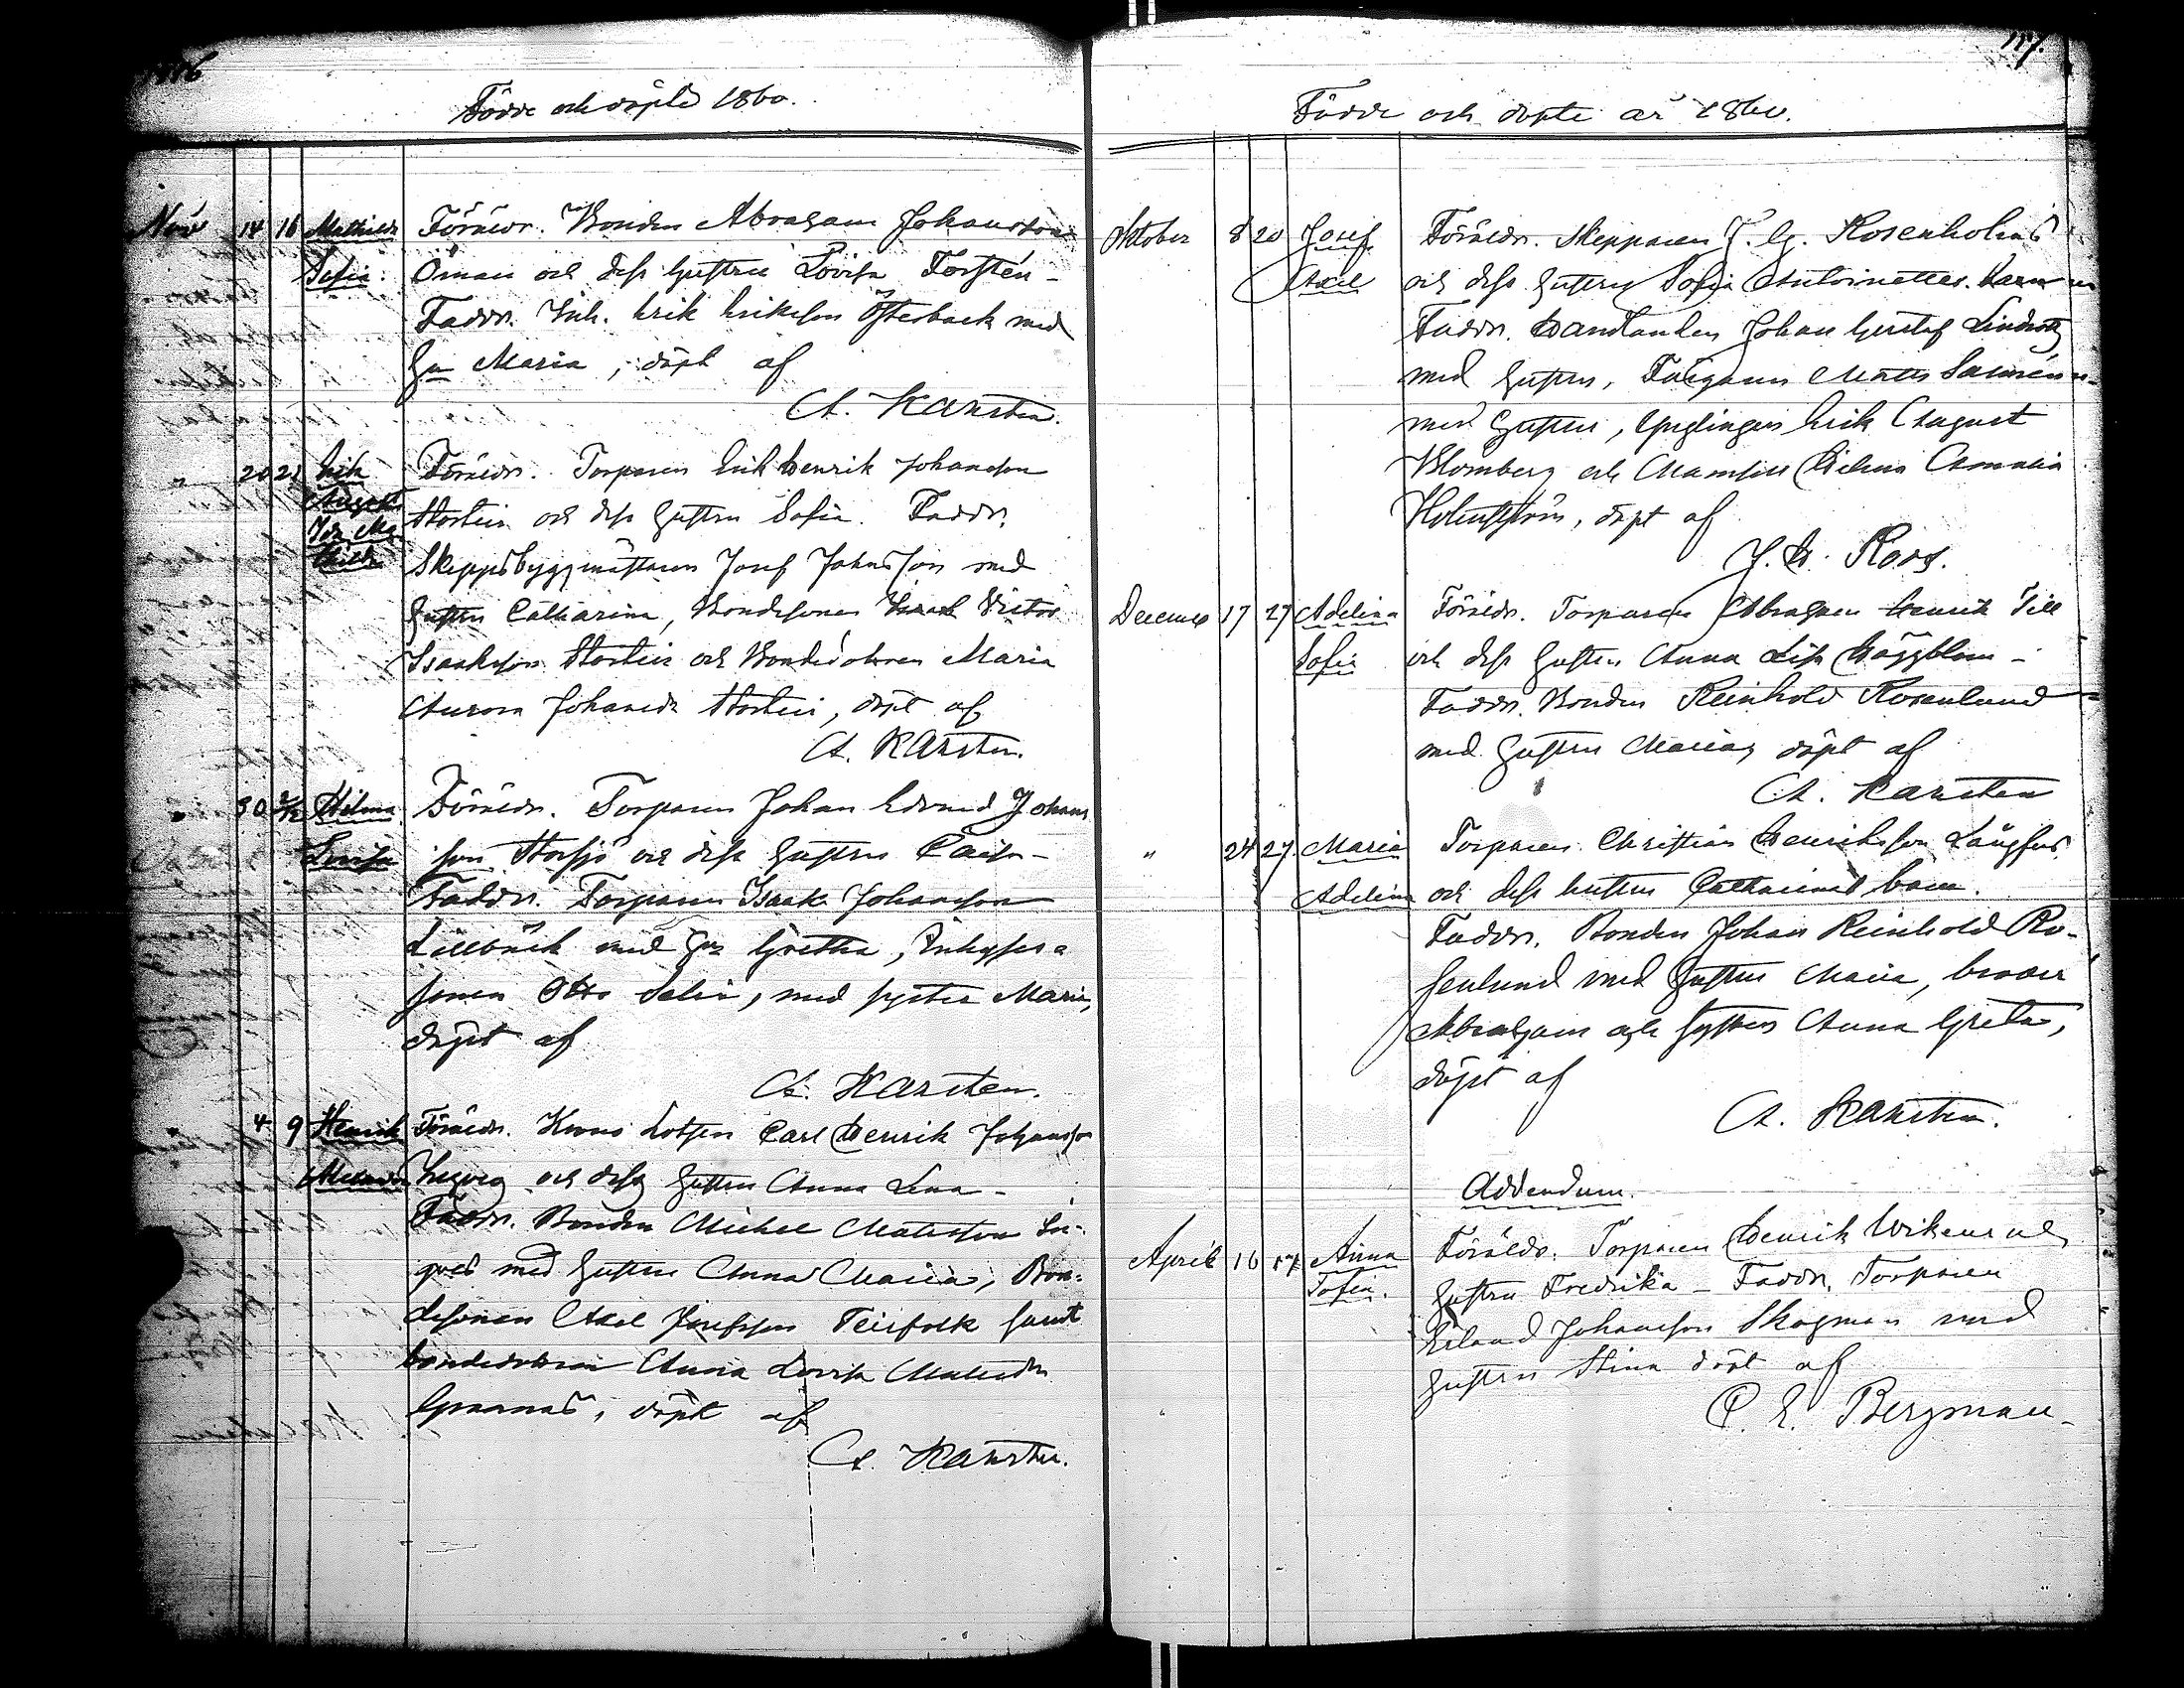 Födde och döpte 1860.
Nov 14 16 Mathilda Föräldr. Bonden Abraham Johansson
Sofia. Öman och dess hustru Lovisa Torstén –
Faddr. Inh. Erik Eriksson Österback med
hu Maria, döpt af
A. Karsten.
" 20 21 Erik Föräldr. Torparen Erik Henrik Johansson
August och dess hustru Sofia. Faddr.
Skeppsbyggmästaren Josef Johansson med
hustru Catharina, Bondesonen Victor
Isaksson och Bondedottren Maria
Aurora Johansdr, döpt af
A. Karsten.
" 30 2/12 Hilma Föräldr. Torparen Johan Edvard Johans
Lovisa son Storsjö och dess hustru Caisa –
Faddr. Torparen Isaak Johansson
Lillbäck med hu Gretha, Inhyses
sonen Otto Selin, med syster Maria,
döpt af
A. Karsten.
" 4 9 Henrik Föräldr. Krono Lotsen Carl Henrik Johansson
och dess hustru Anna Lena –
Faddr. Bonden Michel Matsson
med hustru Anna Maria, Bon-
desonen Axel Josefsson Teirfolk samt
bondedottren Anna Lovisa Matsdr
döpt af
A. Karsten.
Födde och döpte år 1860.
Oktober 8 20 Josef Föräldr. Skepparen J. G. Rosenholms
Axel och dess hustru Sofia Antoinettes barn
Faddr. Handlanden Johan Gustaf
med hustru, Färgaren Matts Salmén
med hustru, Ynglingen Erik August
Blomberg och Mamsell Helena Amanda
Holmström, döpt af
J. H. Roos.
December 17 27 Adelina Föräldr. Torparen Abraham Henrik Sill
Sofia och dess hustru Anna Lisa Häggblom –
Faddr. Bonden Reinhold Rosenlund
med hustru Maria, döpt af
A. Karsten
" 24 27. Maria Torparen Christian Henriksson Långfors
Adelina och dess hustru Catharinas barn.
Faddr. Bonden Johan Reinhold Ro-
senlund med hustru Maria, broder
Abraham och hustru Anna Greta,
döpt af
A. Karsten.
Addendum.
April 16 17 Anna Föräldr. Torparen Henrik och
Sofia. hustru Fredrika – Faddr. Torparen
Erland Johansson Skogman med
hustru Stina döpt af
C. E. Bergman